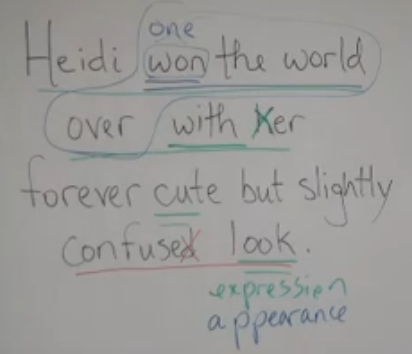 one
Heidi won the world
over with her
forever cute but slightly
confused look.
expression
appearance